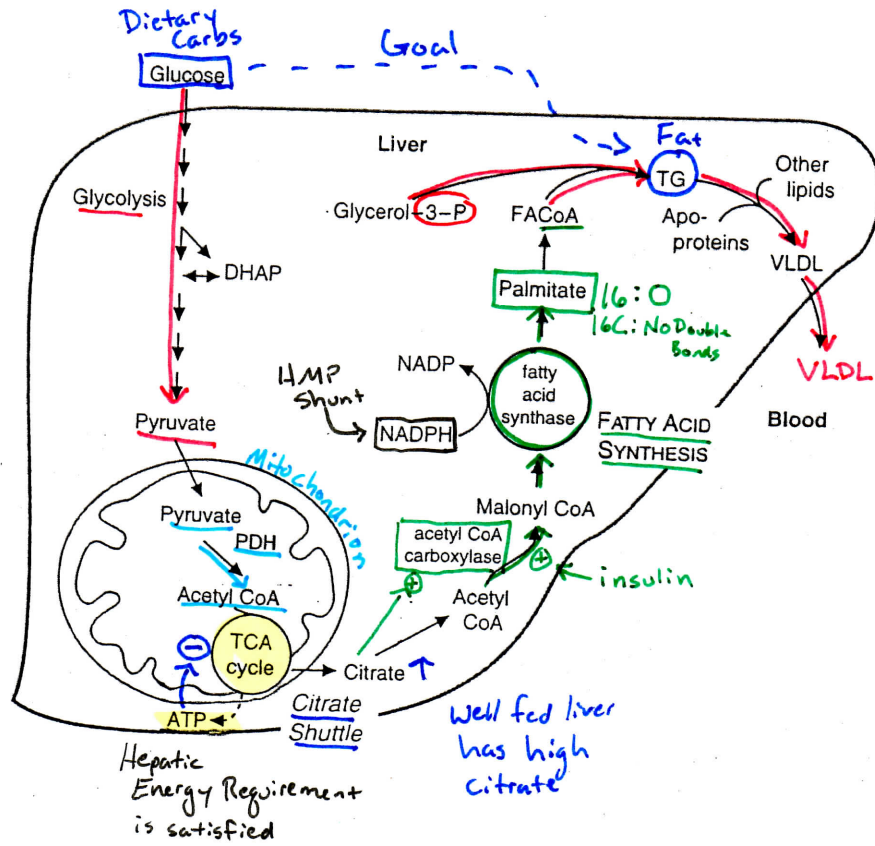 Dietary
Carbs
Glucose
Goal
Liver
Fat
TG
Other
lipids
Apo-
proteins
VLDL
VLDL
Blood
Glycolysis
Glycerol-3-P
FACoA
DHAP
Palmitate
16:0
16C: No Double
Bonds
NADP
HMP
Shunt
NADPH
fatty
acid
synthase
FATTY ACID
SYNTHESIS
Pyruvate
Mitochondrion
Pyruvate
PDH
Acetyl CoA
TCA
cycle
−
ATP
Malonyl CoA
acetyl CoA
carboxylase
+
+
insulin
Acetyl
CoA
Citrate ↑
Citrate
Shuttle
Well fed liver
has high
citrate
Hepatic
Energy Requirement
is satisfied